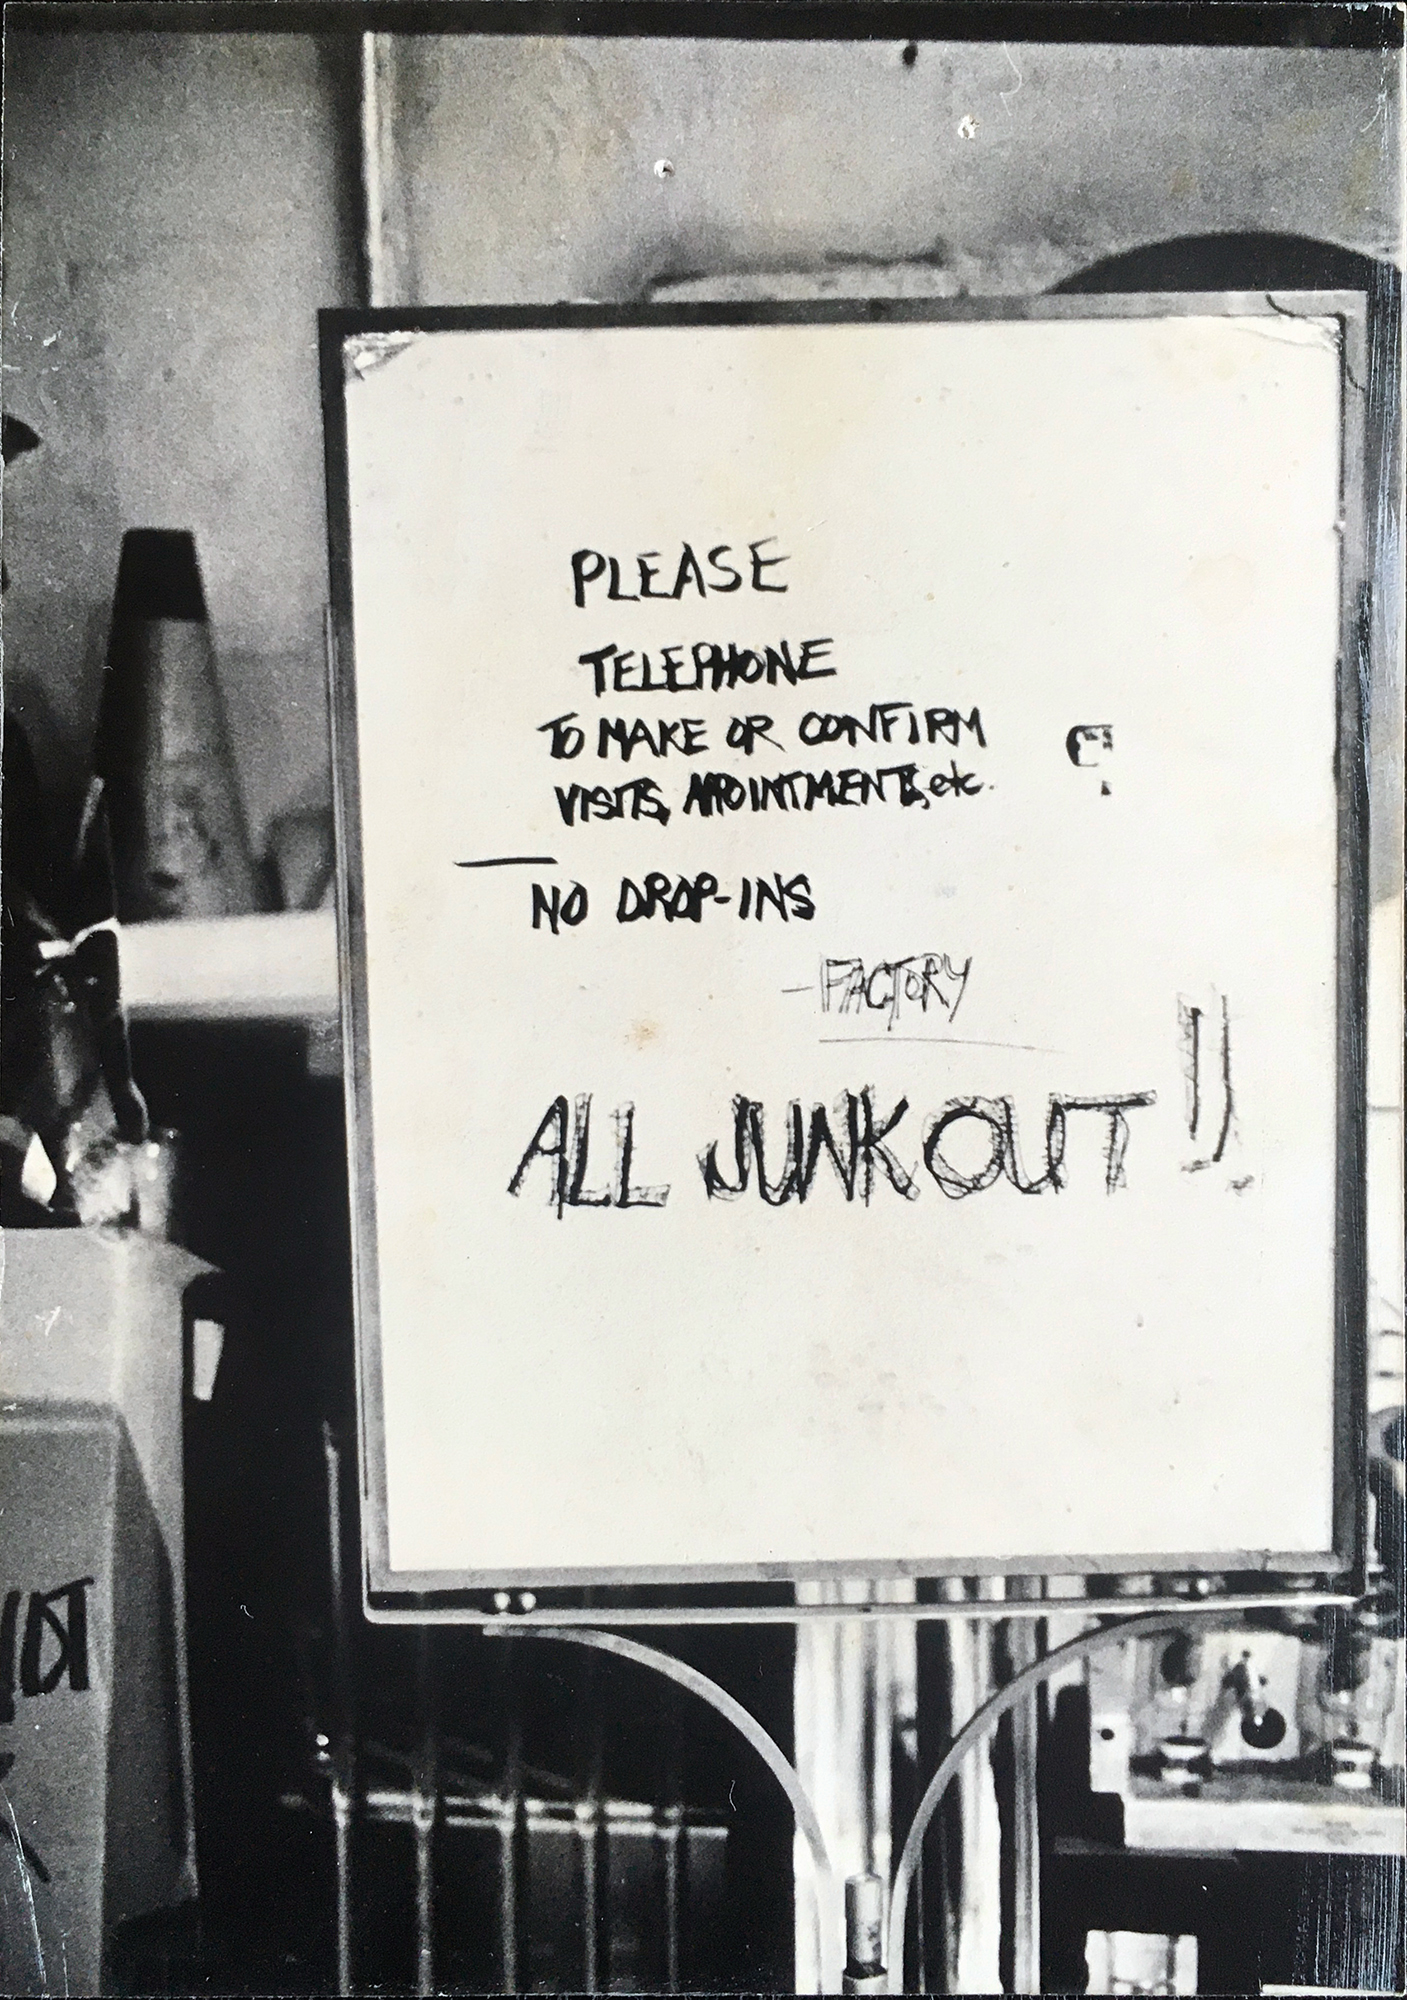 PLEASE
TELEPHONE
TO MAKE OR CONFIRM
VISITS, APPOINTMENTS, etc.
NO DROP-INS
-FACTORY
ALL JUNK OUT!!